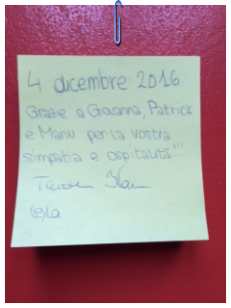 4 dicembre 2016
Grazie a Giovanna, Patrick
e Manu per la vostra
simpatia e ospitalità!!!